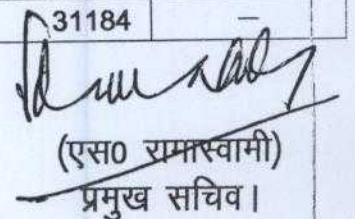 31184 –
(एस0 रामास्वामी)
प्रमुख सचिव।